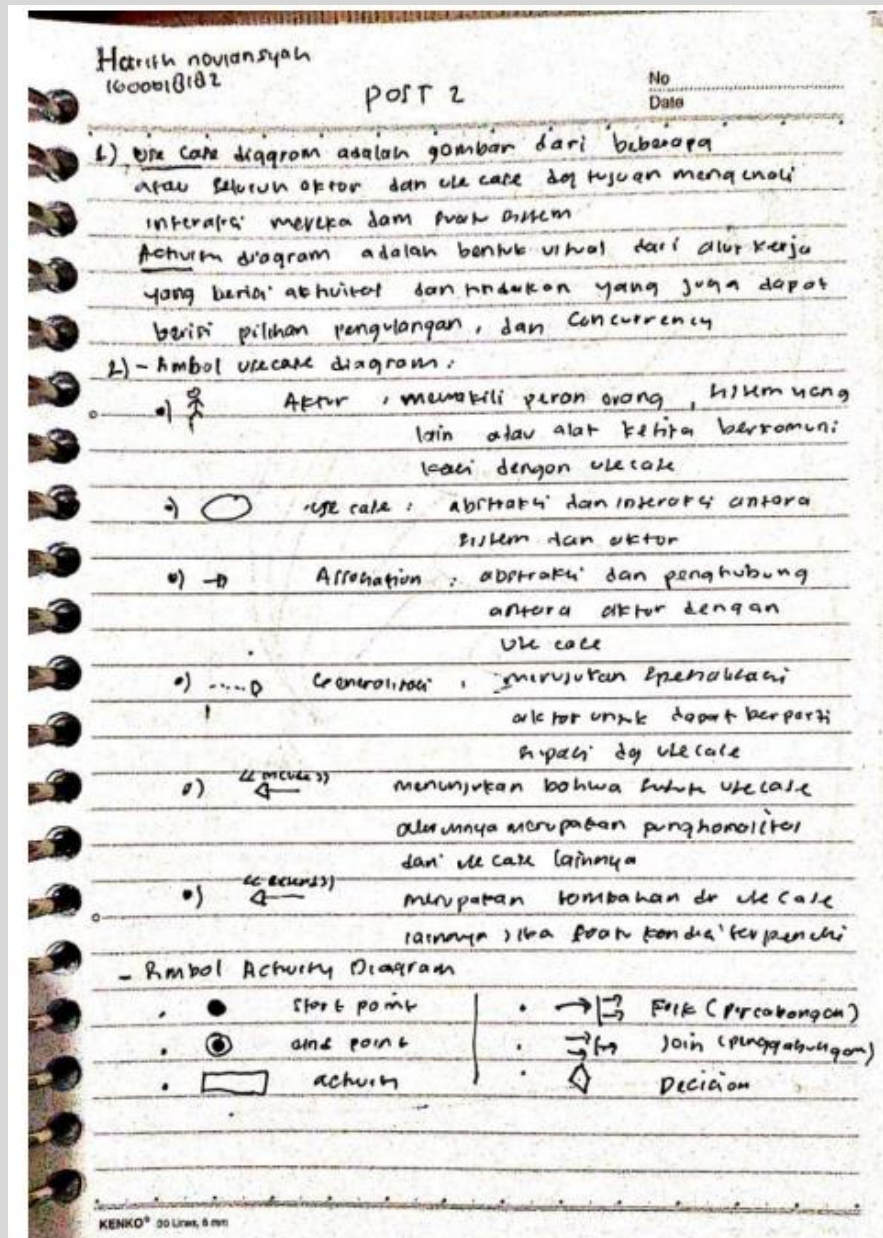 Harith noviansyah
1600018182
POST 2
No
Date
1) Use Case diagram adalah gambar dari beberapa
atau seluruh aktor dan use case dg tujuan mengenali
interaksi mereka dam suatu sistem
Activity diagram adalah bentuk visual dari alur kerja
yang berisi aktivitas dan tindakan yang juga dapat
berisi pilihan pengulangan, dan Concurrency
2) - Simbol usecase diagram :
Aktor : mewakili peran orang, sistem yang
lain atau alat ketika berkomuni
kasi dengan usecase
use case : abstraksi dan interaksi antara
sistem dan aktor
Association : abstraksi dan penghubung
antara aktor dengan
use case
Generalisasi : menujukan spesialisasi
aktor untuk dapat berparti
sipasi dg usecase
<<include>> menunjukan bahwa suatu usecase
merupakan
dari use case lainnya
<<extend>> merupakan tambahan dr use case
lainnya jika suatu kondisi terpenuhi
- Simbol Activity Diagram
start point
end point
activity
Fork (percabangan)
Join (penggabungan)
Decision
KENKO® 30 Lines, 8 mm